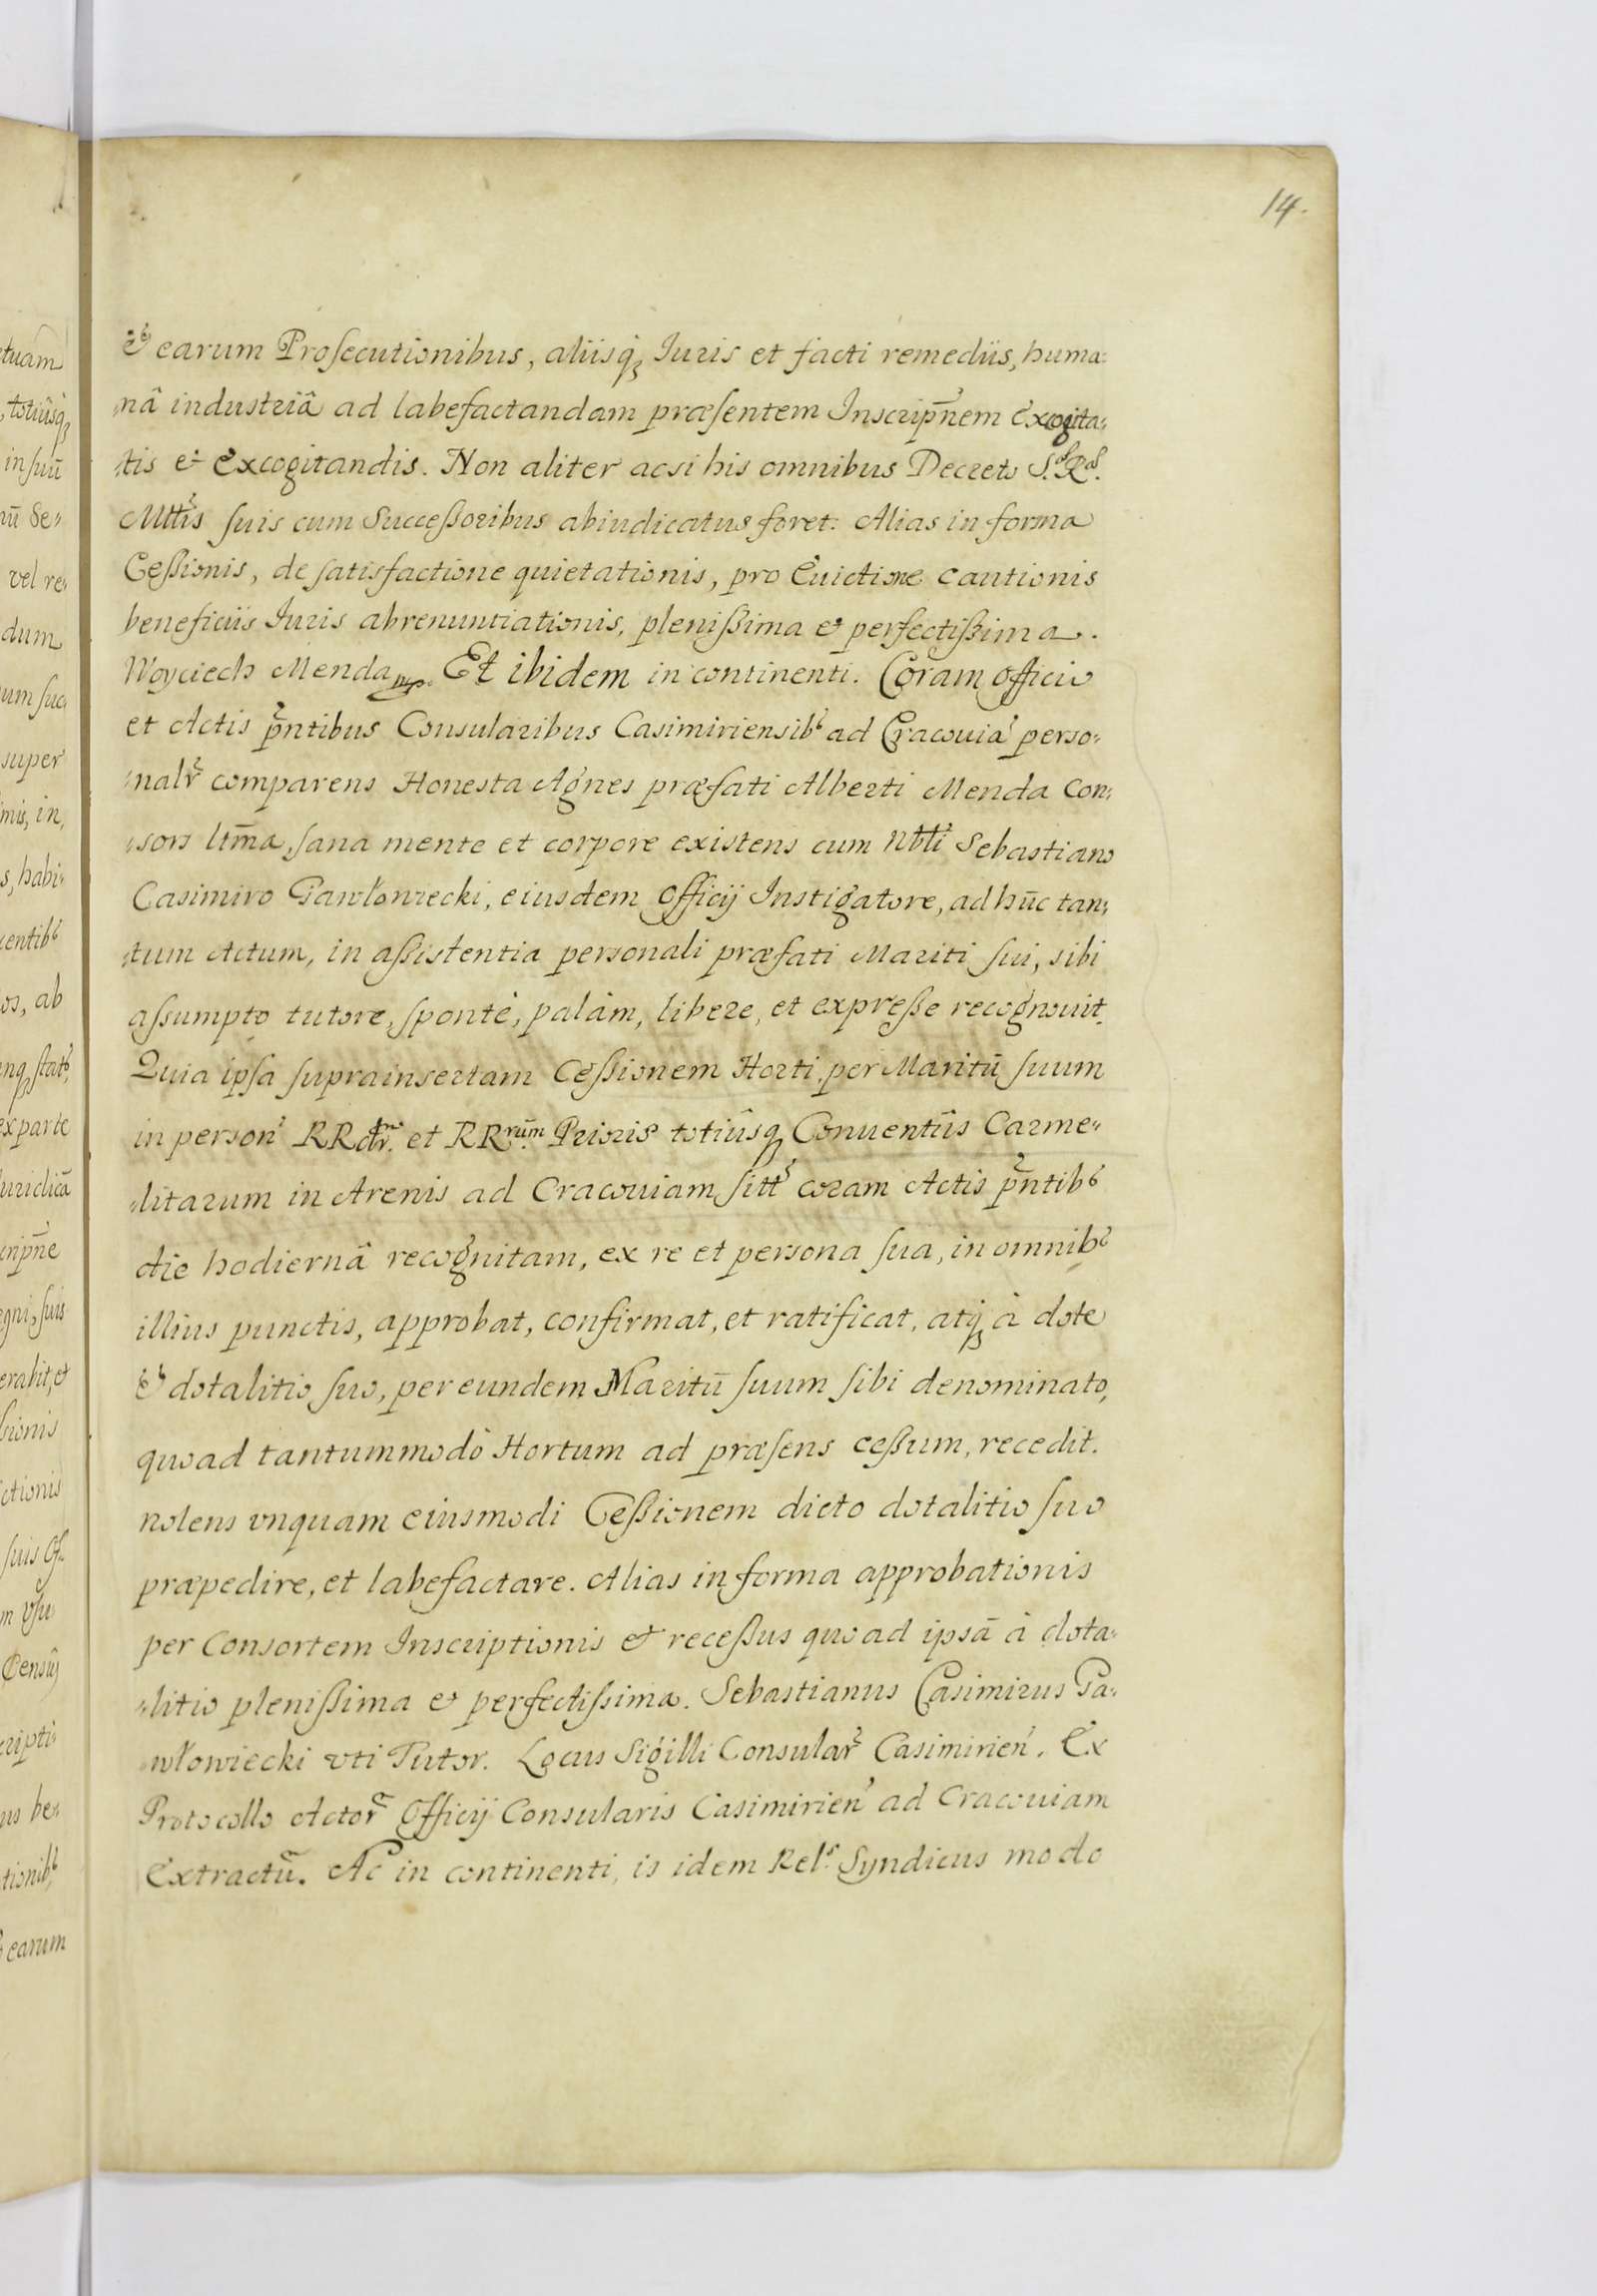 14.
et earum Prosecutionibus, aliisq́ꝫ Iuris et facti remediis, huma:
„nâ industriâ ad labefactandam præsentem Inscrip̄nem Excogita:
„tis et Excogitandis. Non aliter ac si his omnibus Decreto S. R.
Mttis suis cum Successoribus abiudicatus foret: Alias in forma
Cessionis, de satisfactione quietationis, pro Euictione cautionis
beneficiis Iuris abrenuntiationis, plenissima et perfectissima.
Woyciech Menda mp. Et ibidem in continenti. Coram officio
et Actis pntibus Consularibus Casimiriensib9 ad Cracouia' perso„
„nalr comparens Honesta Agnes præfati Alberti Menda Con:
„sors ltma, sana mente et corpore existens cum Nbli Sebastiano
Casimiro Pawłowiecki, eiusdem Officij Instigatore, ad hūc tan:
„tum Actum, in assistentia personali præfati Mariti sui, sibi
assumpto tutore, sponte, palàm, libere, et expresse recognouit.
Quia ipsa suprainsertam Cessionem Horti, per Maritū suum
in person' RR et RRrum Prioris totiûsqꝫ Conuentûs Carme„
„litarum in Arenis ad Cracouiam sitt' coram Actis pntib9
die hodiernâ recognitam, ex re et persona sua, in omnib9
illius punctis, approbat, confirmat, et ratificat, atqꝫ à dote
et dotalitio suo, per eundem Maritū suum sibi denominato,
quoad tantummodò Hortum ad præsens cessum, recedit.
nolens vnquam eiusmodi Cessionem dicto dotalitio suo
præpedire, et labefactare. Alias in forma approbationis
per Consortem Inscriptionis et recessus quoad ipsā à dota„
„litio plenissima et perfectissima. Sebastianus Casimirus Pa„
„włowiecki vti Tutor. Locus Sigilli Consular Casimirien'. Ex
Protocollo Actor Officij Consularis Casimirien' ad Cracouiam
Extractū. Ac in continenti, is idem Rels Syndicus modo